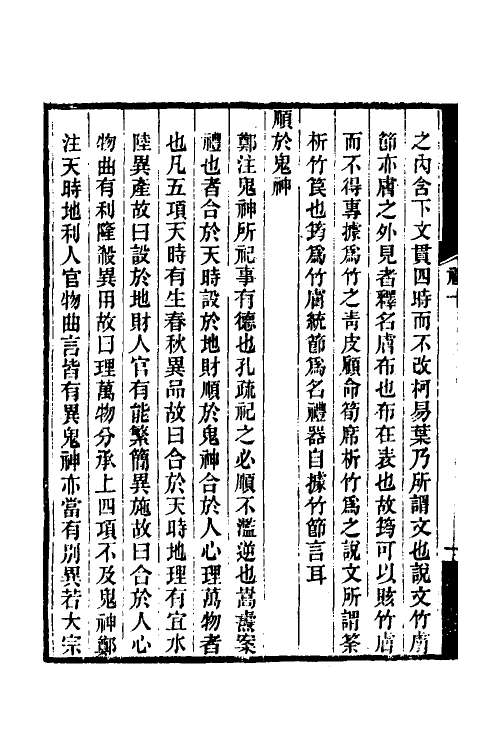 之內含下文貫四時而不改柯易葉乃所謂文也說文竹膚
節亦膚之外見者釋名膚布也布在表也故筠可以賅竹膚
而不得專據爲竹之靑皮顧命筍席析竹爲之說文所謂䇞
析竹笢也筠爲竹膚統節爲名禮器自據竹節言耳
順於鬼神
鄭注鬼神所祀事有德也孔疏祀之必順不濫逆也嵩燾案
禮也者合於天時設於地財順於鬼神合於人心理萬物者
也凡五項天時有生春秋異品故曰合於天時地理有宜水
陸異產故曰設於地財人官有能繁簡異施故曰合於人心
物曲有利隆殺異用故曰理萬物分承上四項不及鬼神鄭
注天時地利人官物曲言皆有異鬼神亦當有別異若大宗
禮十